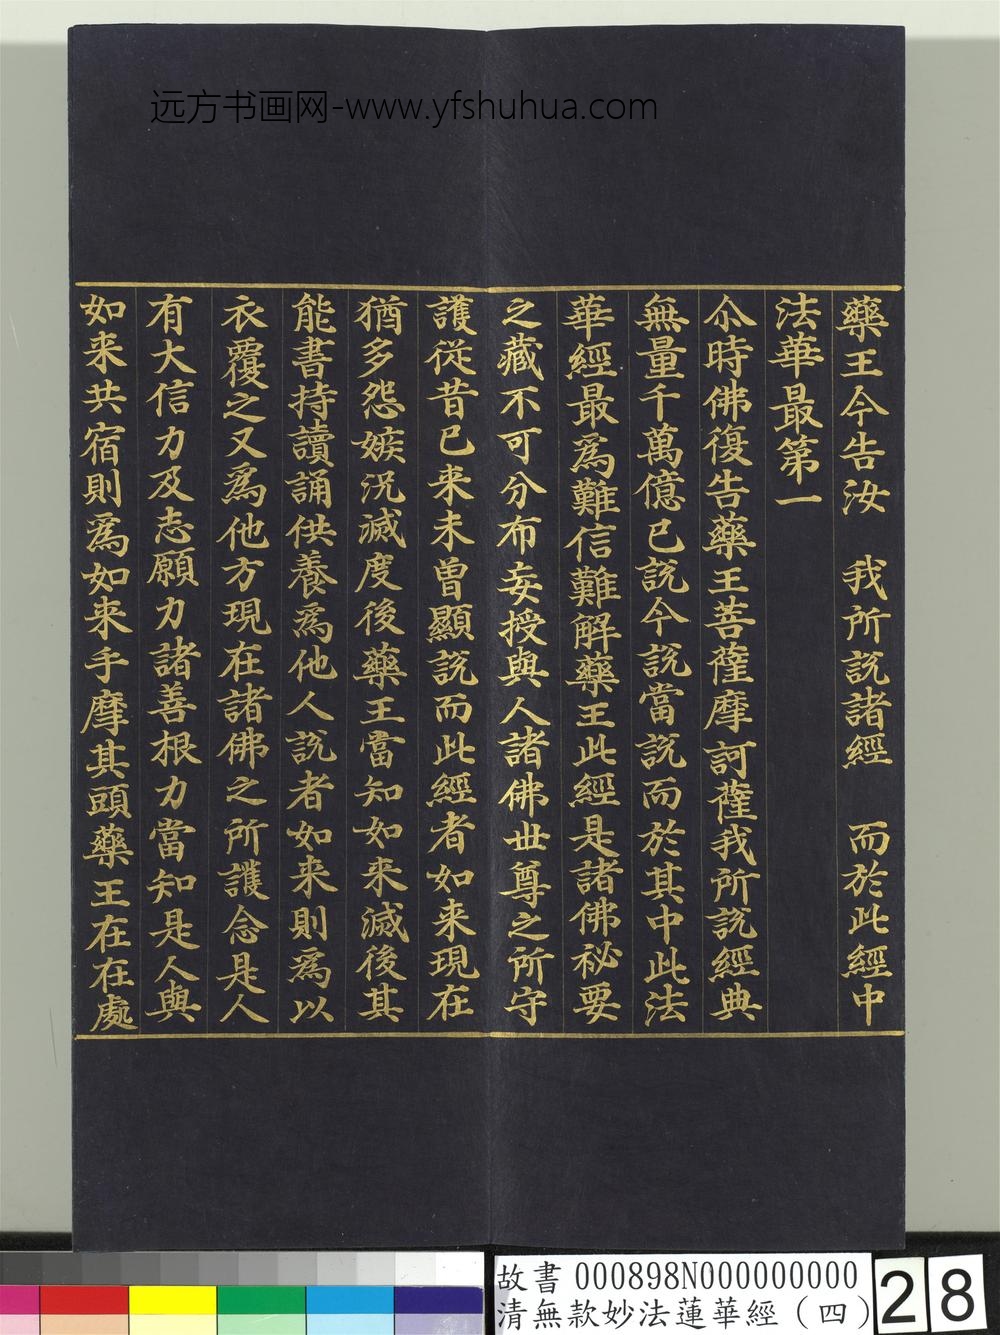 远方书画网-www.yfshuhua.com
藥王今告汝　我所說諸經　而於此經中
法華最第一
尒時佛復告藥王菩薩摩訶薩我所說經典
無量千萬億已說今說當說而於其中此法
華經最為難信難解藥王此經是諸佛秘要
之藏不可分布妄授與人諸佛世尊之所守
護從昔已來未曾顯說而此經者如來現在
猶多怨嫉況滅度後藥王當知如來滅後其
能書持讀誦供養為他人說者如來則為以
衣覆之又為他方現在諸佛之所護念是人
有大信力及志願力諸善根力當知是人與
如來共宿則為如來手摩其頭藥王在在處
故書 000898N000000000
清無款妙法蓮華經（四）
28